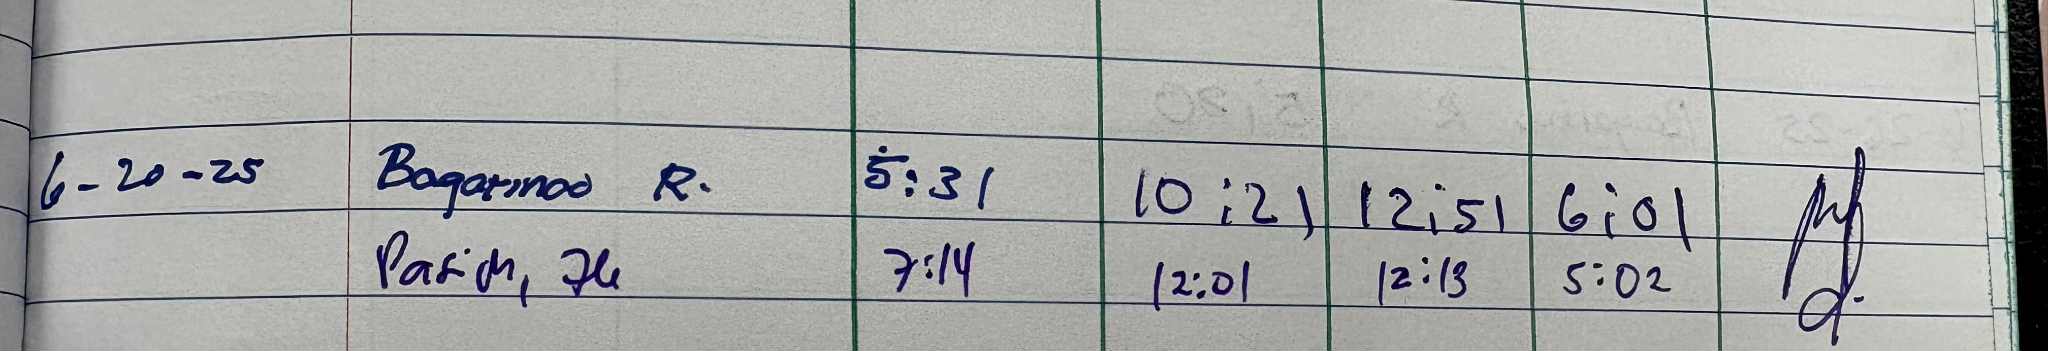 6-20-25 Bagarinao R. 5:31 10:21 12:51 6:01
7:14 12:01 12:13 5:02